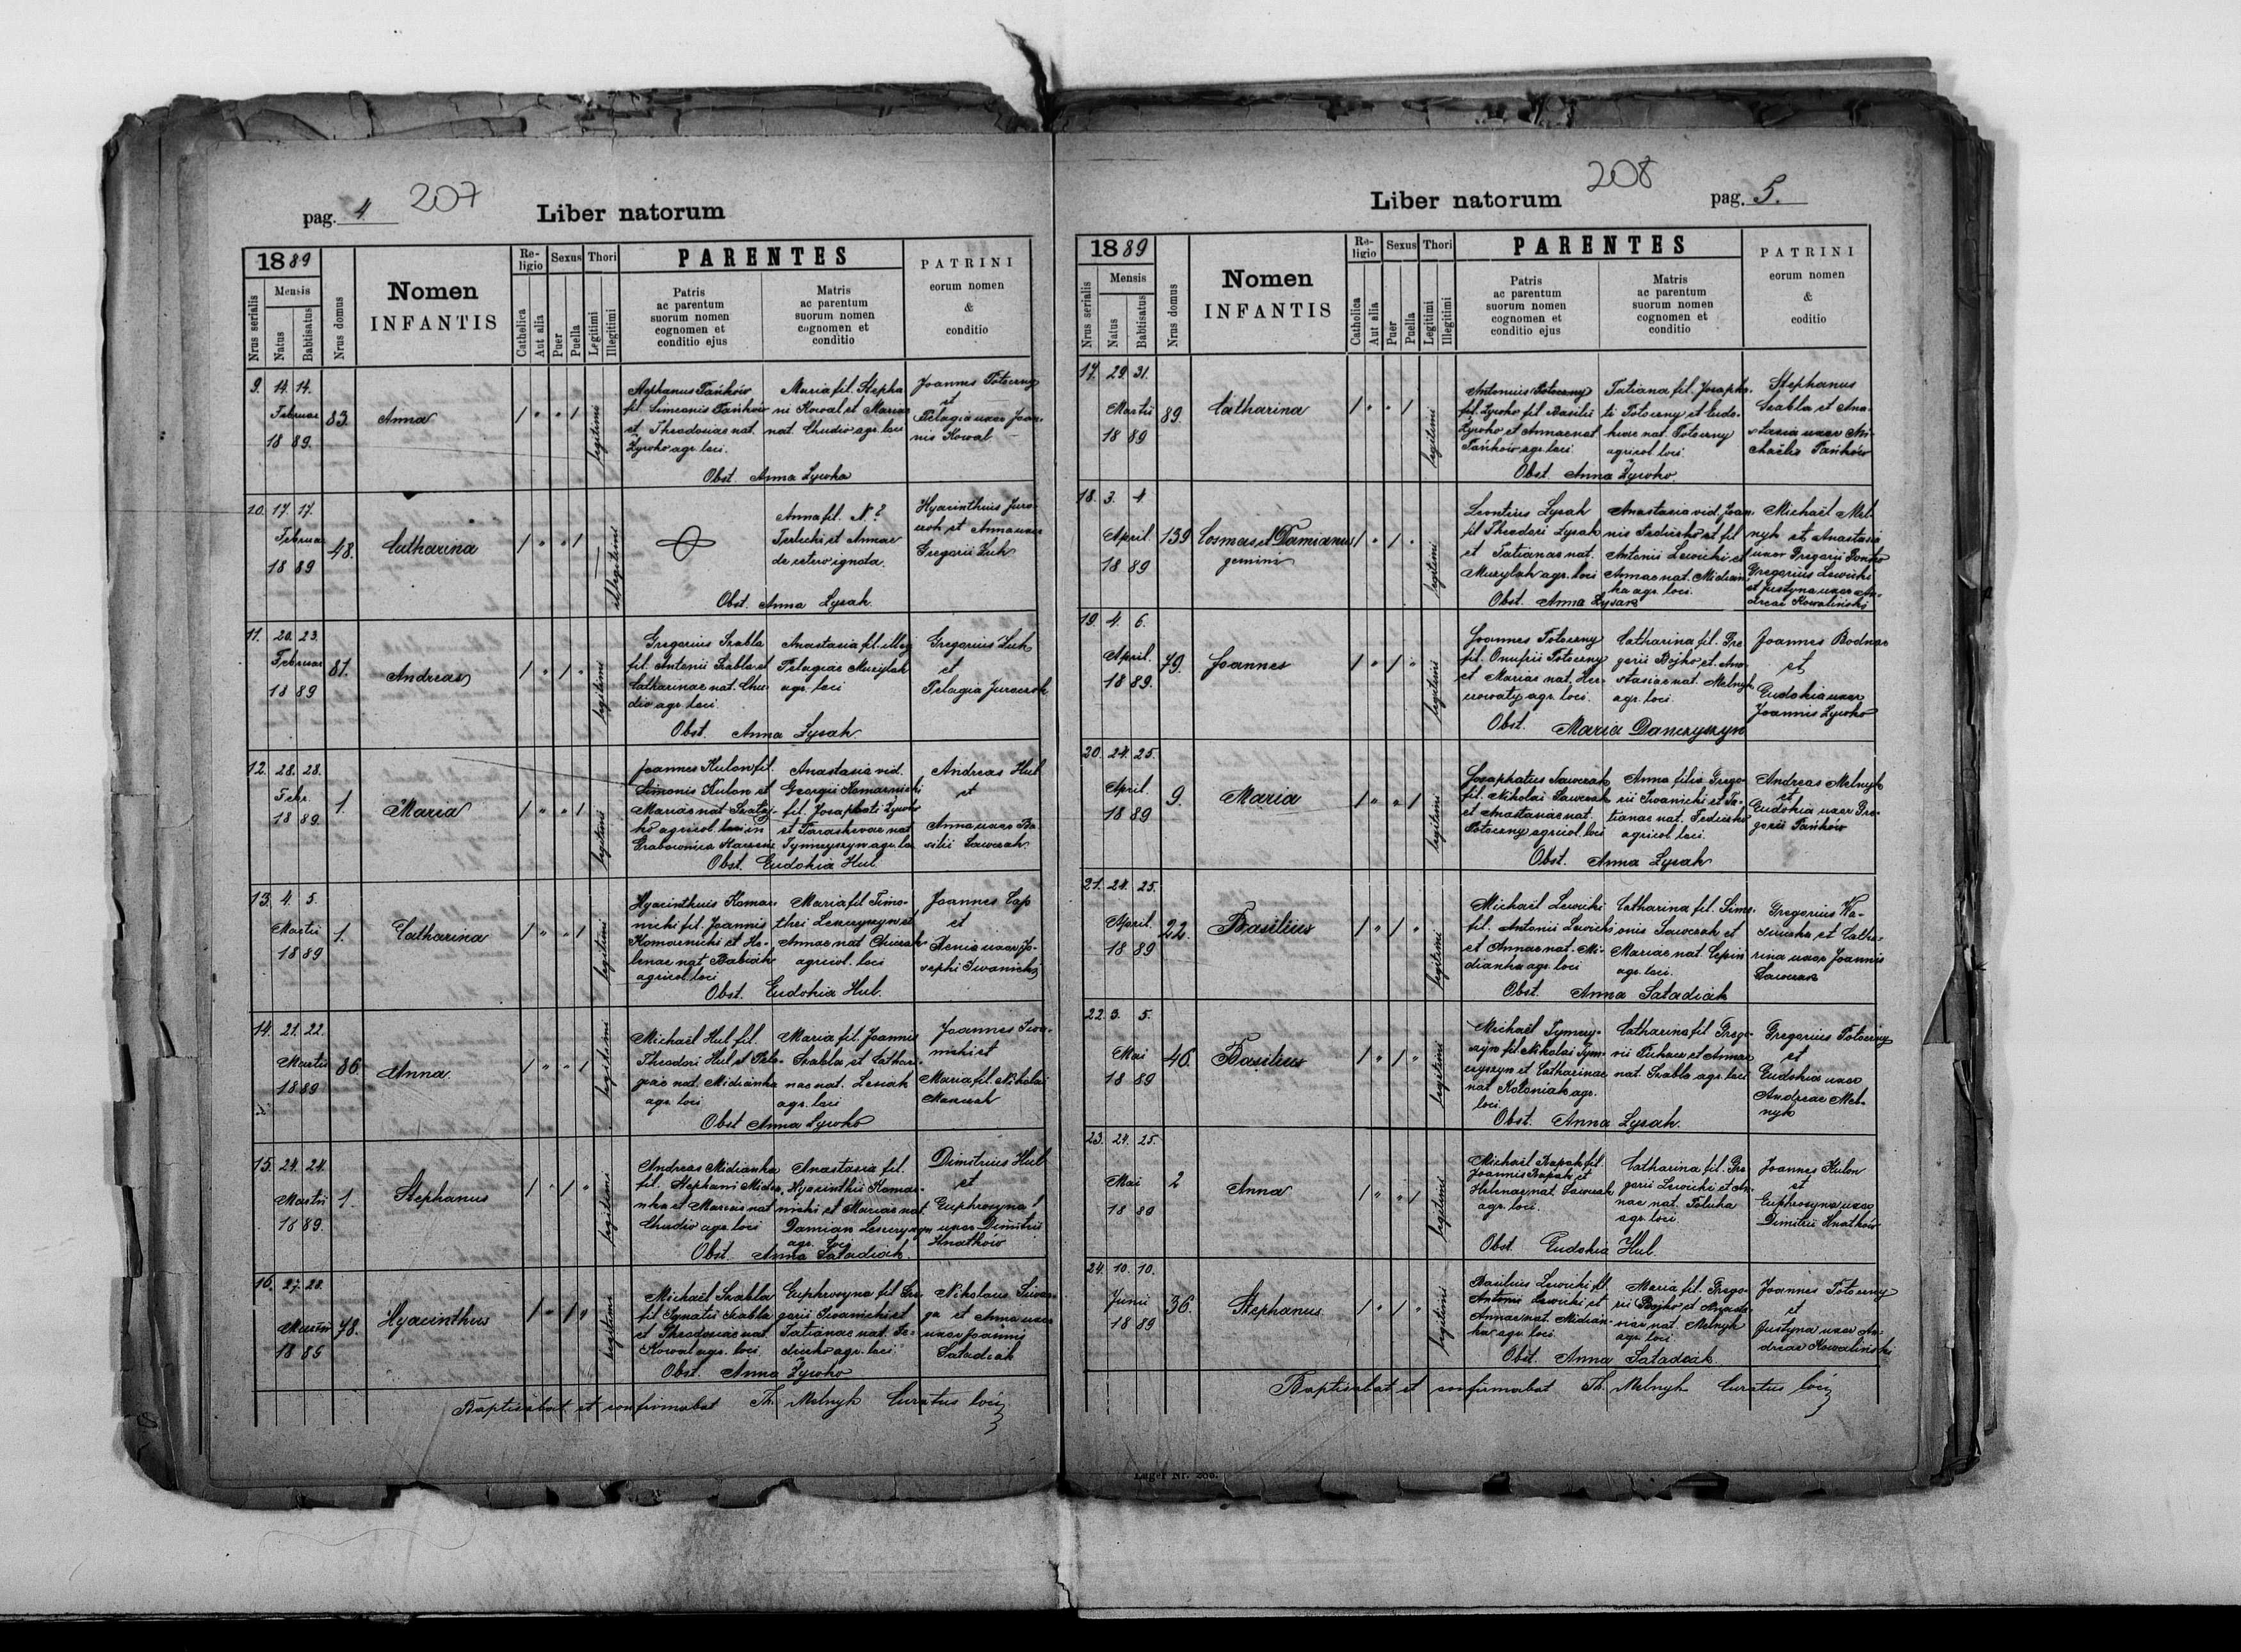 pag. 4
207
Liber natorum
1889
Nrus serialis
Mensis
Natus
Babtisatus
Nrus domus
Nomen
INFANTIS
Religio
Catholica
Aut alia
Sexus
Puer
Puella
Thori
Legitimi
Illegitimi
PARENTES
Patris
ac parentum
suorum nomen
cognomen et
conditio ejus
Matris
ac parentum
suorum nomen
cognomen et
conditio
PATRINI
eorum nomen
&
conditio
9. 14. 14.
Februar
18 89.
83.
Anna
legitimi
Stephanus Pańków
fil. Simeonis Pańków
et Theodosiae nat.
Żywko agr. loci.
Maria fil. Stepha
ni Kowal et Mariae
nat. Chudio agr. loci
Joannes Potoczny
et
Pelagia uxor Joan-
nis Kowal
Obst. Anna Żywka
10. 17. 17.
Februar
18 89
48.
Catharina
illegitimi
Anna fil. N. ?
Terlecki et Annae
de cetero ignota.
Gregorii Żuk
Obst. Anna Łysak.
11. 20. 23.
Februar
18 89
81.
Andreas
legitimi
Gregorius Szabla
fil. Antonii Szabla et
Catharinae nat. Chu-
dio agr. loci.
Anastasia fil. illeg
Pelagiae Muzylak
agr. loci
Gregorius Żuk
et
Pelagia Jurczak
Obst. Anna Łysak.
12. 28. 28.
Febr.
18 89.
1.
Maria
legitimi
Joannes Kulon fil.
Simonis Kulon et
Anastasia vid.
Georgii Komarnicki
fil. Josaphati Żywko
Andreas Hul
et
Anna uxor Ba-
silii Sawczak
Obst. Eudokia Hul.
13. 4. 5.
Martii
18 89
1.
Catharina
legitimi
Hyacinthus Komar-
nicki fil. Joannis
Komarnicki et He-
lenae nat Babiak
agricol. loci
Maria fil Timo-
thei Leszczyszyn et
agricol. loci
Joannes Cap
et
Xenia uxor Jo-
sephi Iwanicki
Obst. Eudokia Hul.
14. 21. 22.
Martii
18 89
86
Anna.
legitimi
Michaël Hul fil.
Theodori Hul et Pela-
giae nat. Midianka
agr. loci
Maria fil. Joannis
Szabla et Cathari-
nae nat. Lesiak
agr. loci
Joannes Iwa-
nicki et
Maria fil. Nikolai
Obst Anna Żywko
15. 24. 24.
Martii
18 89.
1.
Stephanus
legitimi
Andreas Midianka
fil. Stephani Midia
nka et Mariae nat
Chudio agr. loci
Anastasia fil.
Hyacinthii Komar-
nicki et Mariae nat.
Damian Leszczyszyn
agr. loci
Dimitrius Hul
et
Euphrosyna
uxor Dimitrii
Hnatków
Obst. Anna Satadiak.
16. 27. 28.
Martii
78.
Hyacinthus
legitimi
Michaël Szabla
fil Ignatii Szabla
et Theodosiae nat.
Kowal agr. loci.
Euphrosyna fil Gre
gorii Iwanicki et
Tatianae nat. Fe-
dirko agr. loci.
ga et Anna uxor
uxor Joannis
Satadiak
Obst. Anna Żywko
Baptisabat et confirmabat Th. Melnyk Curatus loci
208
Liber natorum
pag. 5.
1889
Nrus serialis
Mensis
Natus
Babtisatus
Nrus domus
Nomen
INFANTIS
Religio
Catholica
Aut alia
Sexus
Puer
Puella
Thori
Legitimi
Illegitimi
PARENTES
Patris
ac parentum
suorum nomen
cognomen et
conditio ejus
Matris
ac parentum
suorum nomen
cognomen et
conditio
PATRINI
eorum nomen
&
coditio
17. 29. 31.
Martii
18 89
89.
Catharina
legitimi
Antonius Potoczny
Pańków agr. loci
Tatiana fil. Josapha-
ti Potoczny et Eudo-
kiae nat. Potoczny
agricol loci.
Stephanus
Szabla et Ana-
stasia uxor Mi-
chaëlis Pańków
Obst. Anna Żywko.
18. 3. 4.
April.
18 89
139
Cosmas et Damianus
gemini
legitimi
Leontius Łysak
fil Theodori Łysak
et Tatianae nat.
Muzylak agr. loci
Anastasia vid. Joan-
nis Fedirko et fil
Antonii Lewicki et
Annae nat. Midian-
ka agr. loci.
Michaël Mel-
nyk et Anastasia
uxor Gregorii
Gregorius Lewicki
et Justyna uxor An-
dreae Kowaliński
Obst. Anna Łysak
19. 4. 6.
April.
18 89.
79.
Joannes
legitimi
Joannes Potoczny
fil. Onufrii Potoczny
et Mariae nat. Her-
cowaty agr. loci.
Catharina fil. Gre
gorii Bojko et Ana-
stasiae nat. Melnyk
agr. loci.
Joannes Bodnar
et
Eudokia uxor
Joannis Żywko
Obst. Maria Danczyszyn
20. 24. 25.
April.
18 89
9.
Maria
legitimi
Josaphatus Sawczak
fil. Nikolai Sawczak
et Anastasiae nat.
Potoczny agricol. loci
Anna filia Grego-
rii Iwanicki et Ta-
tianae nat. Fedirko
agricol loci.
Andreas Melnyk
et
Eudokia uxor Gre-
gorii Pańków
Obst. Anna Łysak
21. 24. 25.
April.
18 89
22.
Basilius
legitimi
Michaël Lewicki
fil. Antonii Lewicki
et Annae nat. Mi-
dianka agr. loci
Catharina fil. Sime-
onis Sawczak et
Mariae nat. Cepin
agr. loci.
Gregorius
et Catha-
rina uxor Joannis
Sawczak
Obst. Anna Satadiak
22. 3. 5.
Mai
18 89
46.
Basilius
legitimi
Michaël Tymczy-
szyn fil. Nikolai Tym-
czyszyn et Catharinae
nat Kotoniak agr.
loci
Catharina fil Grego-
rii et Annae
nat. Szabla agr. loci
Gregorius Potoczny
et
Eudokia uxor
Andreae Mel-
nyk
Obst. Anna Łysak.
23. 24. 25.
Mai
18 89
2
Anna
legitimi
Helenae nat. Sawczak
agr. loci.
Catharina fil. Gre
gorii Lewicki et An-
nae nat. Potuka
agr. loci.
Joannes Kulon
et
Euphrosyna uxor
Dimitrii Hnatków
Obst. Eudokia Hul.
24. 10. 10.
Junii
18 89
36.
Stephanus.
legitimi
Basilius Lewicki fil
Antonii Lewicki et
Annae nat. Midian-
ka agr. loci.
Maria fil. Grego-
rii Bojko et Anasta-
siae nat. Melnyk
agr. loci
Joannes Potoczny
et
Justyna uxor An-
dreae Kowaliński
Obst. Anna Satadiak
Baptisabat et confirmabat Th. Melnyk Curatus loci